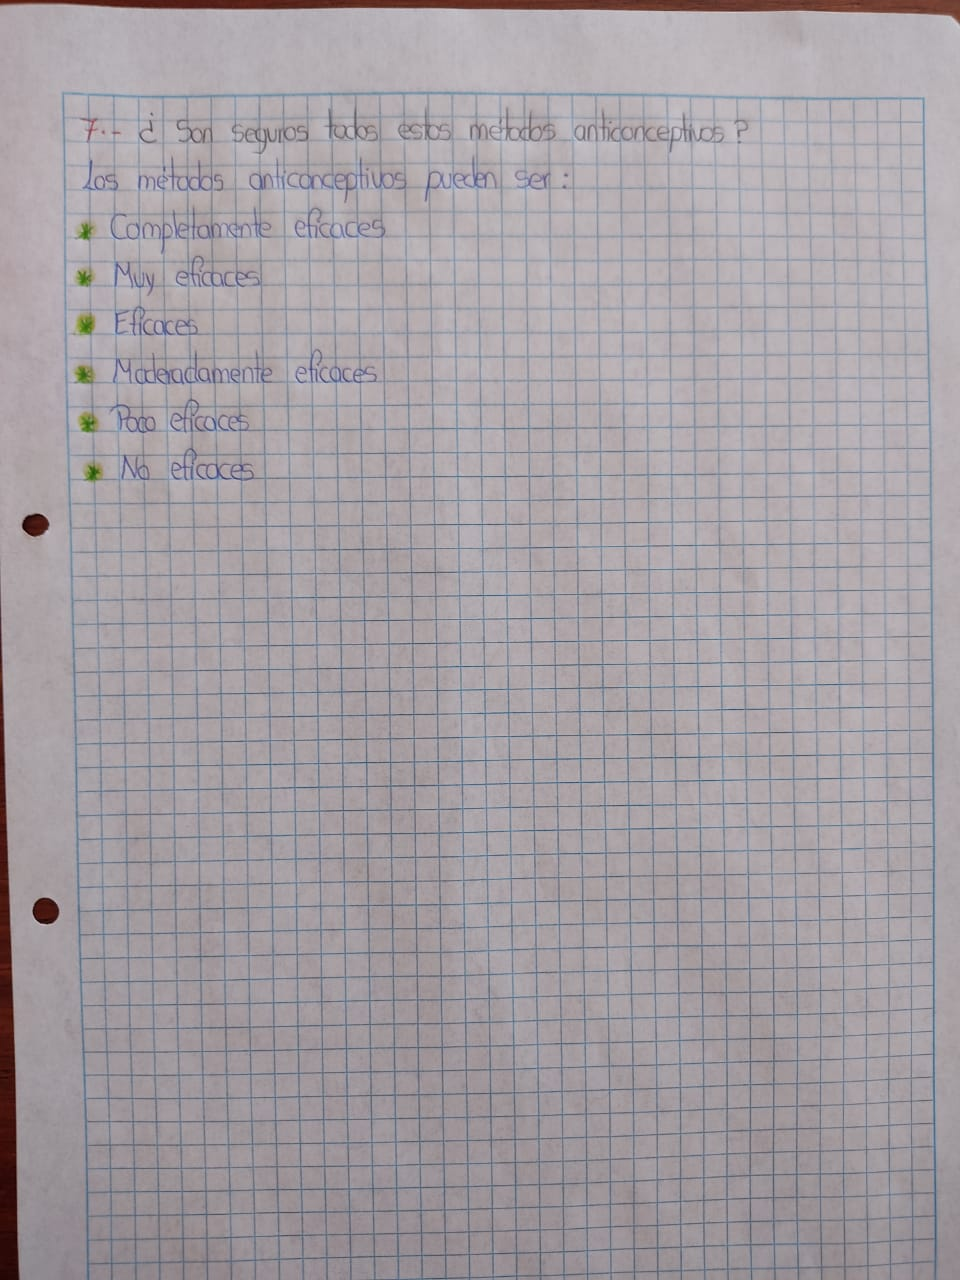 7.- ¿ Son seguros todos estos métodos anticonceptivos ?
Los métodos anticonceptivos pueden ser :
* Completamente eficaces
* Muy eficaces
* Eficaces
* Moderadamente eficaces
* Poco eficaces
* No eficaces